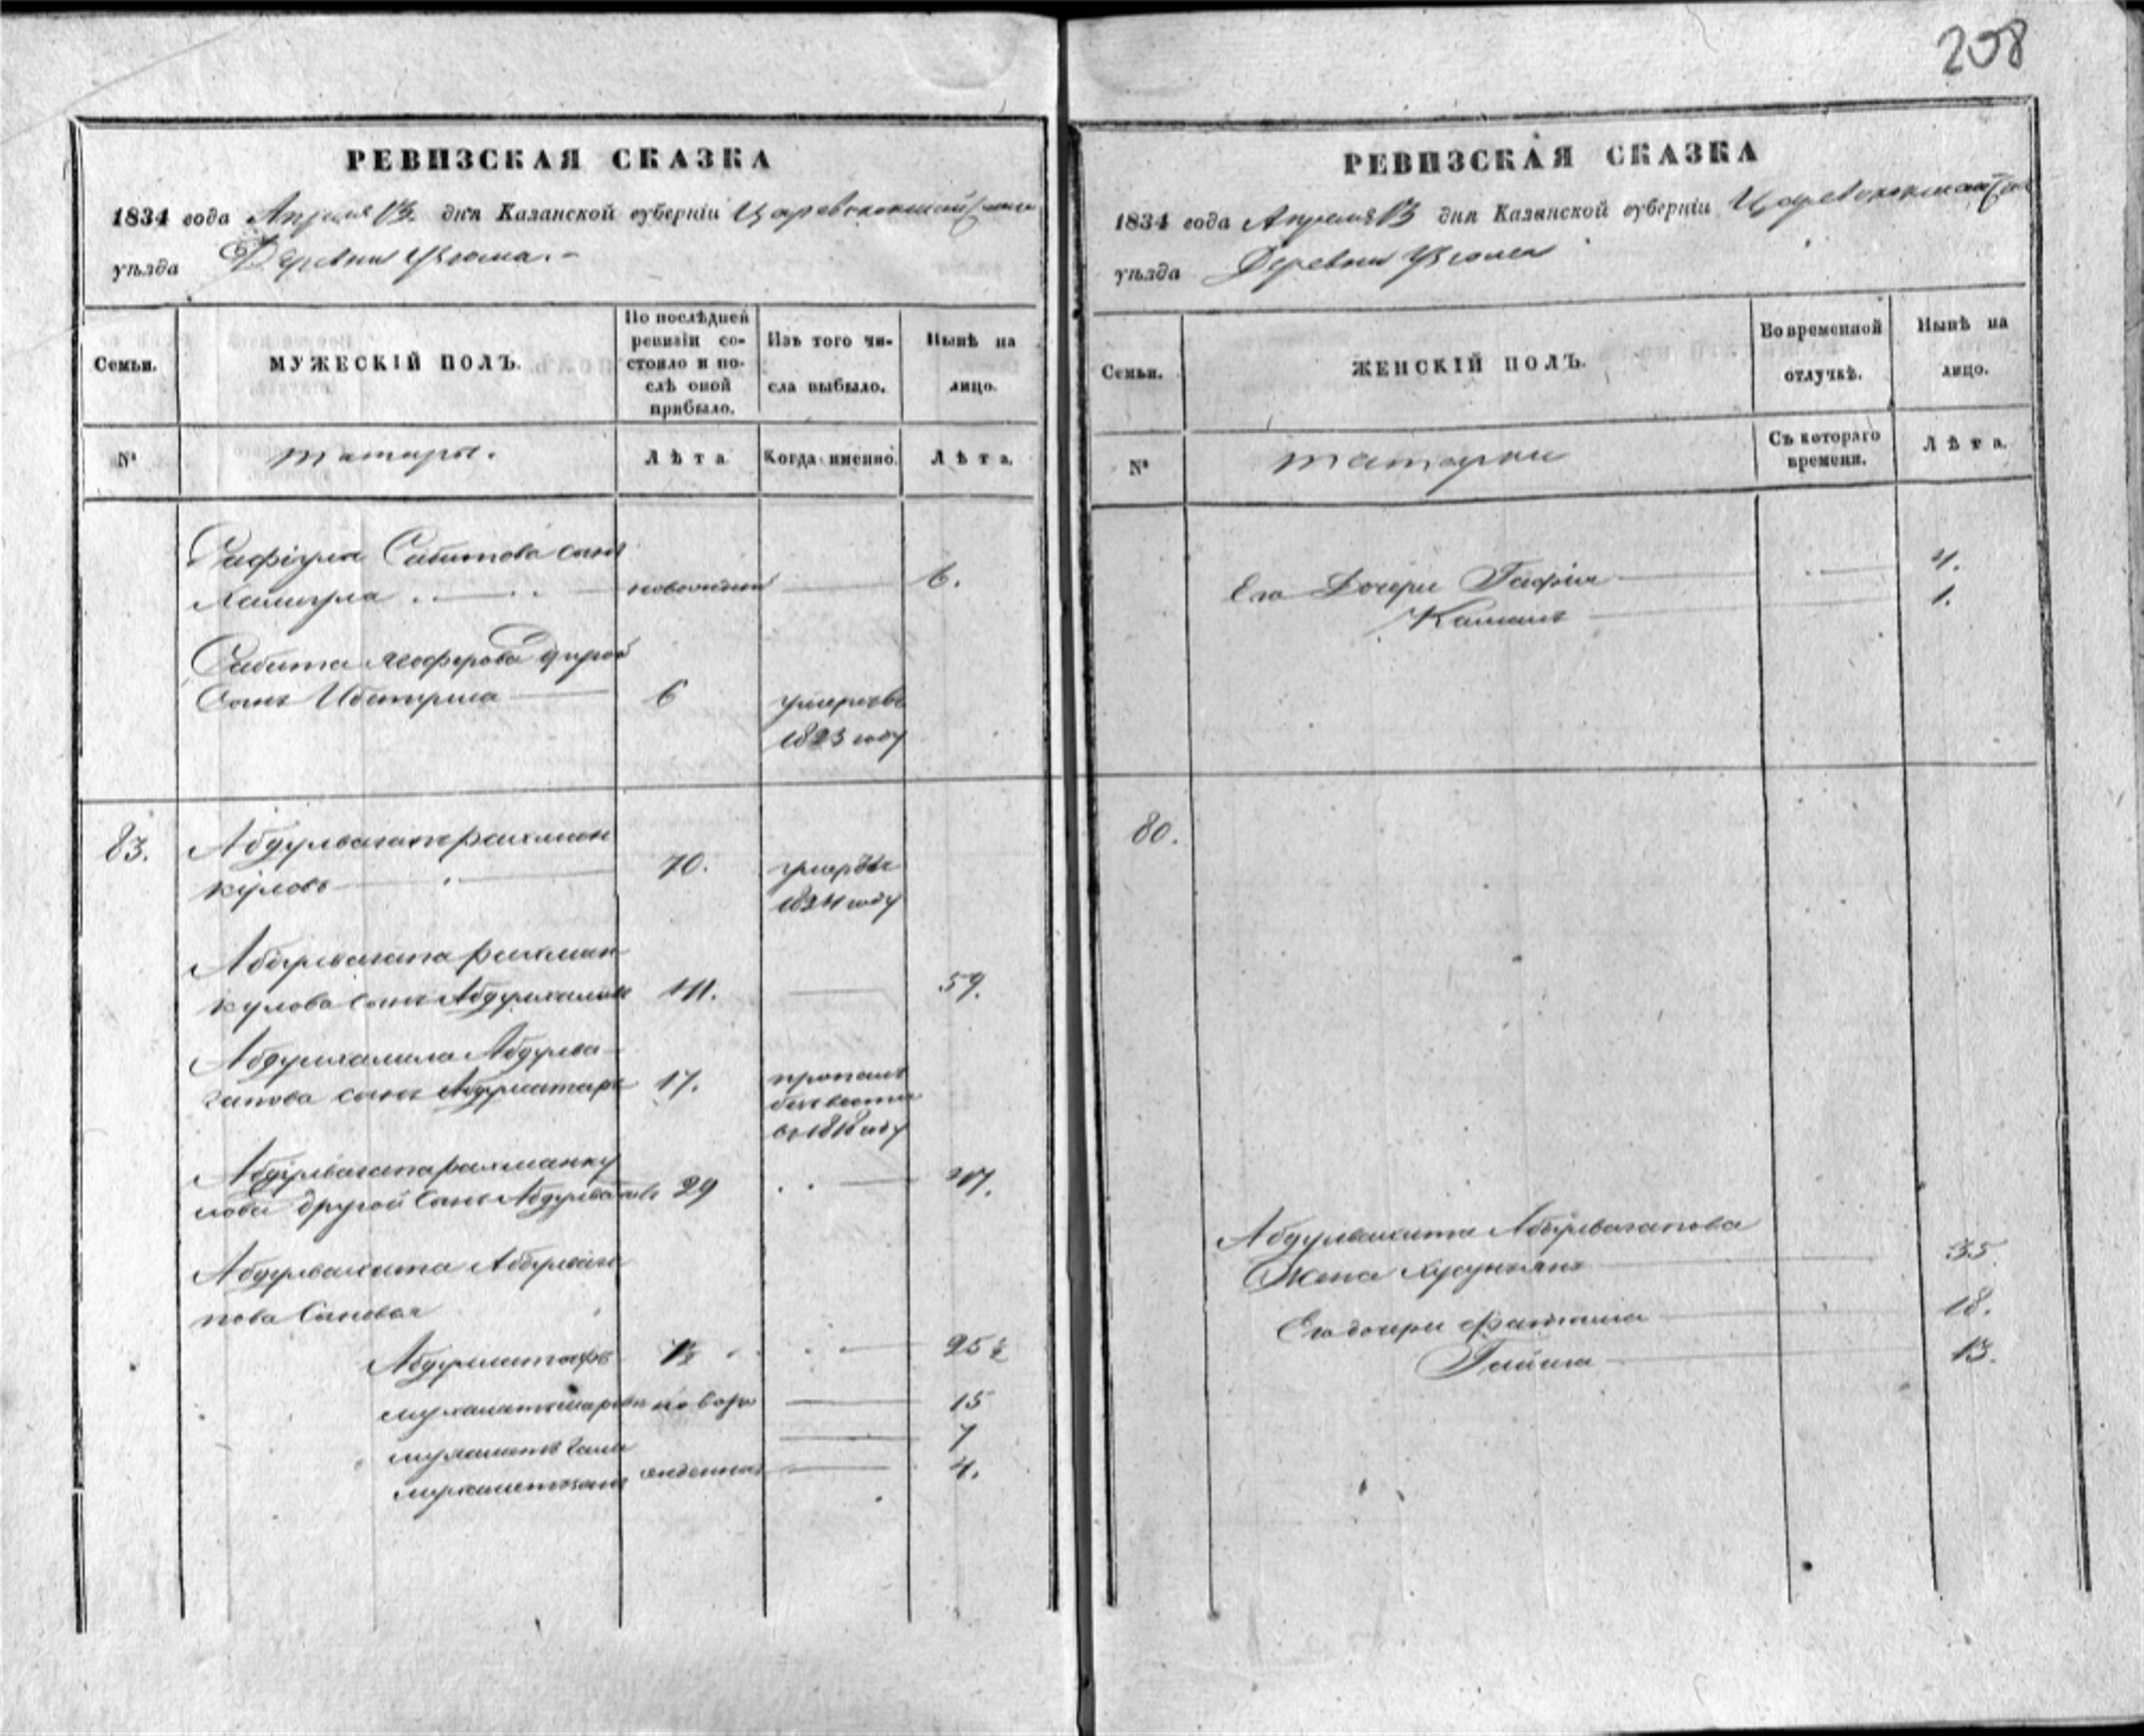 208
РЕВИЗСКАЯ СКАЗКА
1834 года Апреля 13 дня Казанской губерніи Царевококшайскаго
уѣзда Деревни
Семьи.
МУЖЕСКІЙ ПОЛЪ.
По послѣдней ревизіи состояло и послѣ оной прибыло.
Изъ того числа выбыло.
Нынѣ на лицо.
№
татары.
Лѣта
Когда именно.
Лѣта.
Рафіула Сабитова сынъ
Халиула новорожденный 6.
Сабита другой
сынъ 6 умеръ въ
1823 году
83. Абдулвагапъ Рахман
куловъ 70. умеръ въ
1824 году
Абдулвагапа Рахман
кулова сынъ Абдулхалилъ 41. 59.
Абдулхалила Абдулва
гапова сынъ Абдулсатаръ 17. пропалъ
безвести
въ 1818 году
Абдулвагапа Рахманку
лова другой сынъ 29 47.
Абдулвахита Абдулвага
пова сыновья
7½ 25½
новоро 15
мухаметъ гали 7
мухаметзянъ жденные 4.
РЕВИЗСКАЯ СКАЗКА
1834 года Апреля 13 дня Казанской губерніи Царевококшайскаго
уѣзда Деревни
Семьи.
ЖЕНСКІЙ ПОЛЪ.
Во временной отлучкѣ.
Нынѣ на лицо.
№
татарки
Съ котораго времени.
Лѣта.
Его дочери Гафія 4.
1.
80.
Абдулвахита Абдулвагапова
Жена 35
Его дочери Фатима 18.
13.